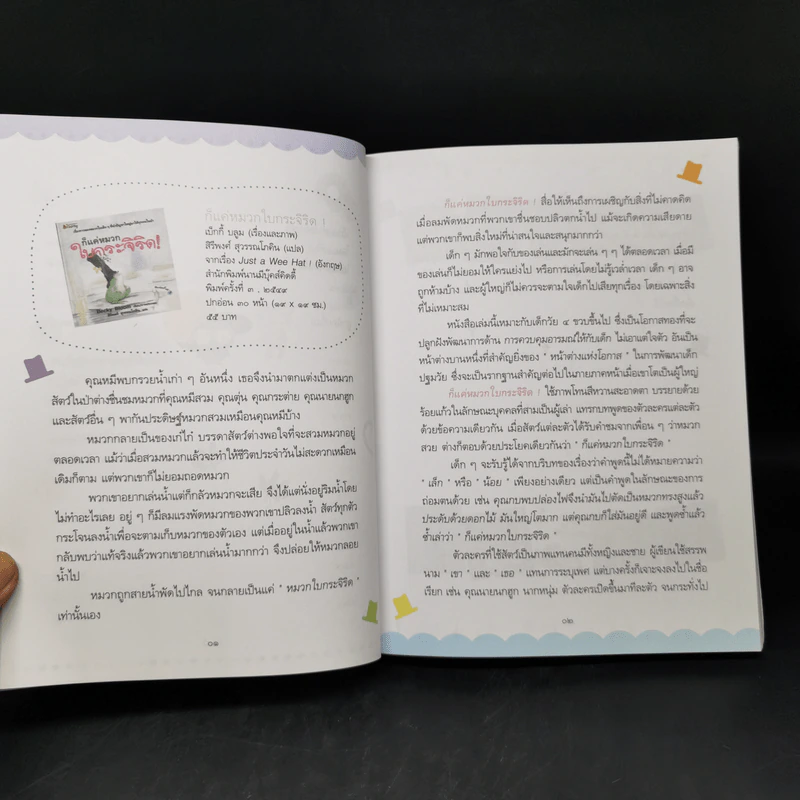 ก็แค่หมวก
ใบกระจิริด!
ก็แค่หมวกใบกระจิริด !
เบ็กกี้ บลูม (เรื่องและภาพ)
สิริพงศ์ สุวรรณโภคิน (แปล)
จากเรื่อง Just a Wee Hat ! (อังกฤษ)
สำนักพิมพ์นานมีบุ๊คส์คิดดี้
พิมพ์ครั้งที่ ๓ , ๒๕๔๙
ปกอ่อน ๓๐ หน้า (๑๙ x ๑๙ ซม.)
๕๕ บาท
คุณหมีพบกรวยน้ำเก่า ๆ อันหนึ่ง เธอจึงนำมาตกแต่งเป็นหมวก
สัตว์ในป่าต่างชื่นชมหมวกที่คุณหมีสวม คุณตุ่น คุณกระต่าย คุณนายนกฮูก
และสัตว์อื่น ๆ พากันประดิษฐ์หมวกสวมเหมือนคุณหมีบ้าง
หมวกกลายเป็นของเก๋ไก๋ บรรดาสัตว์ต่างพอใจที่จะสวมหมวกอยู่
ตลอดเวลา แม้ว่าเมื่อสวมหมวกแล้วจะทำให้ชีวิตประจำวันไม่สะดวกเหมือน
เดิมก็ตาม แต่พวกเขาก็ไม่ยอมถอดหมวก
พวกเขาอยากเล่นน้ำแต่ก็กลัวหมวกจะเสีย จึงได้แต่นั่งอยู่ริมน้ำโดย
ไม่ทำอะไรเลย อยู่ ๆ ก็มีลมแรงพัดหมวกของพวกเขาปลิวลงน้ำ สัตว์ทุกตัว
กระโจนลงน้ำเพื่อจะตามเก็บหมวกของตัวเอง แต่เมื่ออยู่ในน้ำแล้วพวกเขา
กลับพบว่าแท้จริงแล้วพวกเขาอยากเล่นน้ำมากกว่า จึงปล่อยให้หมวกลอย
น้ำไป
หมวกถูกสายน้ำพัดไปไกล จนกลายเป็นแค่ ' หมวกใบกระจิริด '
เท่านั้นเอง
๐๑
ก็แค่หมวกใบกระจิริด ! สื่อให้เห็นถึงการเผชิญกับสิ่งที่ไม่คาดคิด
เมื่อลมพัดหมวกที่พวกเขาชื่นชอบปลิวตกน้ำไป แม้จะเกิดความเสียดาย
แต่พวกเขาก็พบสิ่งใหม่ที่น่าสนใจและสนุกมากกว่า
เด็ก ๆ มักพอใจกับของเล่นและมักจะเล่น ๆ ๆ ได้ตลอดเวลา เมื่อมี
ของเล่นก็ไม่ยอมให้ใครแย่งไป หรือการเล่นโดยไม่รู้เวล่ำเวลา เด็ก ๆ อาจ
ถูกห้ามบ้าง และผู้ใหญ่ก็ไม่ควรจะตามใจเด็กไปเสียทุกเรื่อง โดยเฉพาะสิ่ง
ที่ไม่เหมาะสม
หนังสือเล่มนี้เหมาะกับเด็กวัย ๔ ขวบขึ้นไป ซึ่งเป็นโอกาสทองที่จะ
ปลูกฝังพัฒนาการด้าน การควบคุมอารมณ์ให้กับเด็ก ไม่เอาแต่ใจตัว อันเป็น
หน้าต่างบานหนึ่งที่สำคัญยิ่งของ ' หน้าต่างแห่งโอกาส ' ในการพัฒนาเด็ก
ปฐมวัย ซึ่งจะเป็นรากฐานสำคัญต่อไปในภายภาคหน้าเมื่อเขาโตเป็นผู้ใหญ่
ก็แค่หมวกใบกระจิริด ! ใช้ภาพโทนสีหวานสะอาดตา บรรยายด้วย
ร้อยแก้วในลักษณะบุคคลที่สามเป็นผู้เล่า แทรกบทพูดของตัวละครแต่ละตัว
ด้วยข้อความเดียวกัน เมื่อสัตว์แต่ละตัวได้รับคำชมจากเพื่อน ๆ ว่าหมวก
สวย ต่างก็ตอบด้วยประโยคเดียวกันว่า ' ก็แค่หมวกใบกระจิริด '
เด็ก ๆ จะรับรู้ได้จากบริบทของเรื่องว่าคำพูดนี้ไม่ได้หมายความว่า
' เล็ก ' หรือ ' น้อย ' เพียงอย่างเดียว แต่เป็นคำพูดในลักษณะของการ
ถ่อมตนด้วย เช่น คุณกบพบปล่องไฟจึงนำมันไปดัดเป็นหมวกทรงสูงแล้ว
ประดับด้วยดอกไม้ มันใหญ่โตมาก แต่คุณกบก็ใส่มันอยู่ดี และพูดซ้ำแล้ว
ซ้ำเล่าว่า ' ก็แค่หมวกใบกระจิริด '
ตัวละครที่ใช้สัตว์เป็นภาพแทนคนมีทั้งหญิงและชาย ผู้เขียนใช้สรรพ
นาม ' เขา ' และ ' เธอ ' แทนการระบุเพศ แต่บางครั้งก็เจาะจงลงไปในชื่อ
เรียก เช่น คุณนายนกฮูก นากหนุ่ม ตัวละครเปิดขึ้นมาทีละตัว จนกระทั่งไป
๐๒